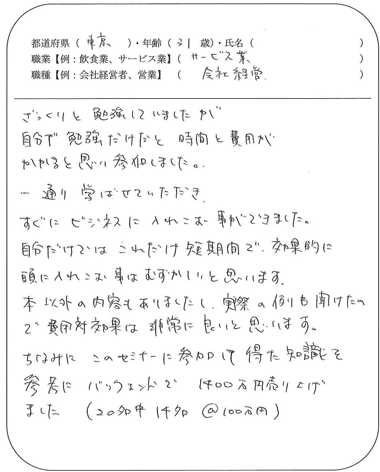 都道府県（東京）・年齢（31歳）・氏名（　　　）
職業【例：飲食業、サービス業】（サービス業）
職種【例：会社経営者、営業】（会社経営）
ざっくりと勉強していましたが
自分で勉強だけだと時間と費用が
かかると思い参加しました。
一通り学ばせていただき
すぐにビジネスに入れこむ事ができました。
自分だけではこれだけ短期間で、効果的に
頭に入れこむ事はむずかしいと思います。
本以外の内容もありましたし、実際の例りも聞けたの
で費用対効果は非常に良いと思います。
ちなみにこのセミナーに参加して得た知識を
参考にバックエンドで1400万円売り上げ
ました（20名中14名@100万円）